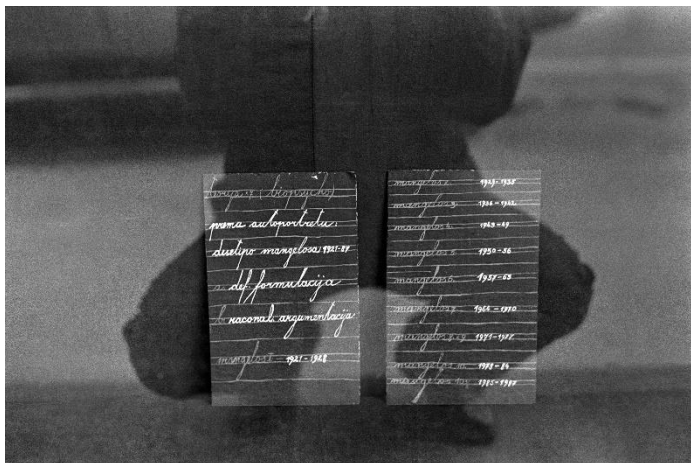 prema autoportretu:
desetipo mangelosa 1921-87
a def. formulacija
b racional. argumentacija
mangelos 1921-1928
mangelos 1929-1935
mangelos 1936-1942
mangelos 1943-49
mangelos 1950-56
mangelos 1957-63
mangelos 1964-1970
mangelos 1971-1977
mangelos 1978-84
mangelos 1985-1987